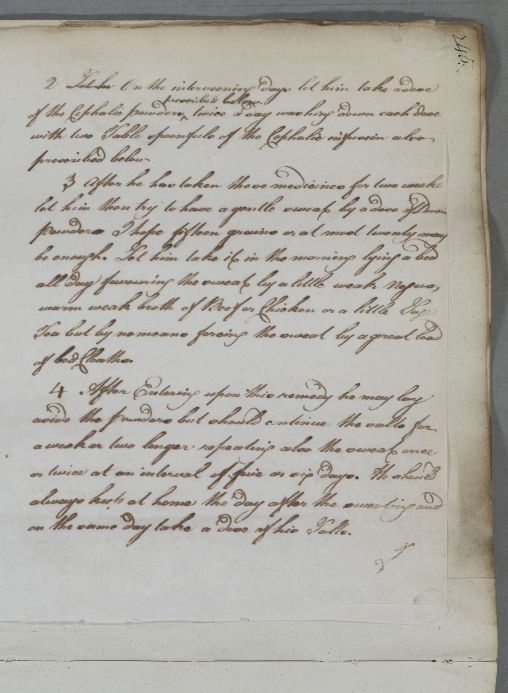 245
2 Let he On the intervening days let him take a dose
prescribed below
of the Cephalic powders, twice a day washing down each dose
with two Table spoonfuls of the Cephalic infusion also
prescribed below.
3 After he has taken these medicines for two weeks
let him then try to have a gentle sweat by a dose of Dovers
powders I hope fifteen grains or at most twenty may
be enough. Let him take it in the morning lying a bed
all day favouring the sweat by a little weak Negus,
warm weak broth of Beef or Chicken or a little Sage
Tea but by no means forcing the sweat by a great load
of bed Cloaths.
4 After Entering upon this remedy he may lay
aside the powders but should continue the salts for
a week or two longer repeating also the sweat once
or twice at an interval of five or six days. He should
always keep at home the day after the sweating and
on the same day take a dose of his Salts.